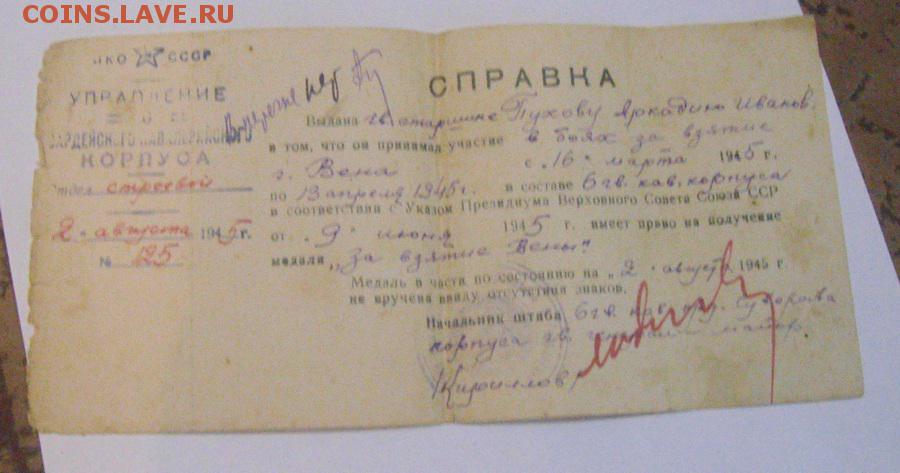 COINS.LAVE.RU
НКО СССР
УПРАВЛЕНИЕ
6
ВАРДЕЙСКОГО КАВАЛЕРИЙСКОГО
КОРПУСА
Отдел строевой
2 августа 1945 г.
№ 125
СПРАВКА
Выдана гв. старшине Пухову Аркадию Иванов.
в том, что он принимал участие в боях за взятие
г. Вена с „16" марта 1945 г.
по 13 апреля 1945 г. в составе 6 гв. кав. корпуса
в соответствии с Указом Президиума Верховного Совета Союза ССР
от „9" июня 1945 г. имеет право на получение
медали „За взятие Вены"
Медаль в части по состоянию на „2" августа 1945 г.
не вручена ввиду отсутствия знаков.
Начальник штаба 6 гв. кав. орд. Суворова
корпуса гв. майор
Кириллов